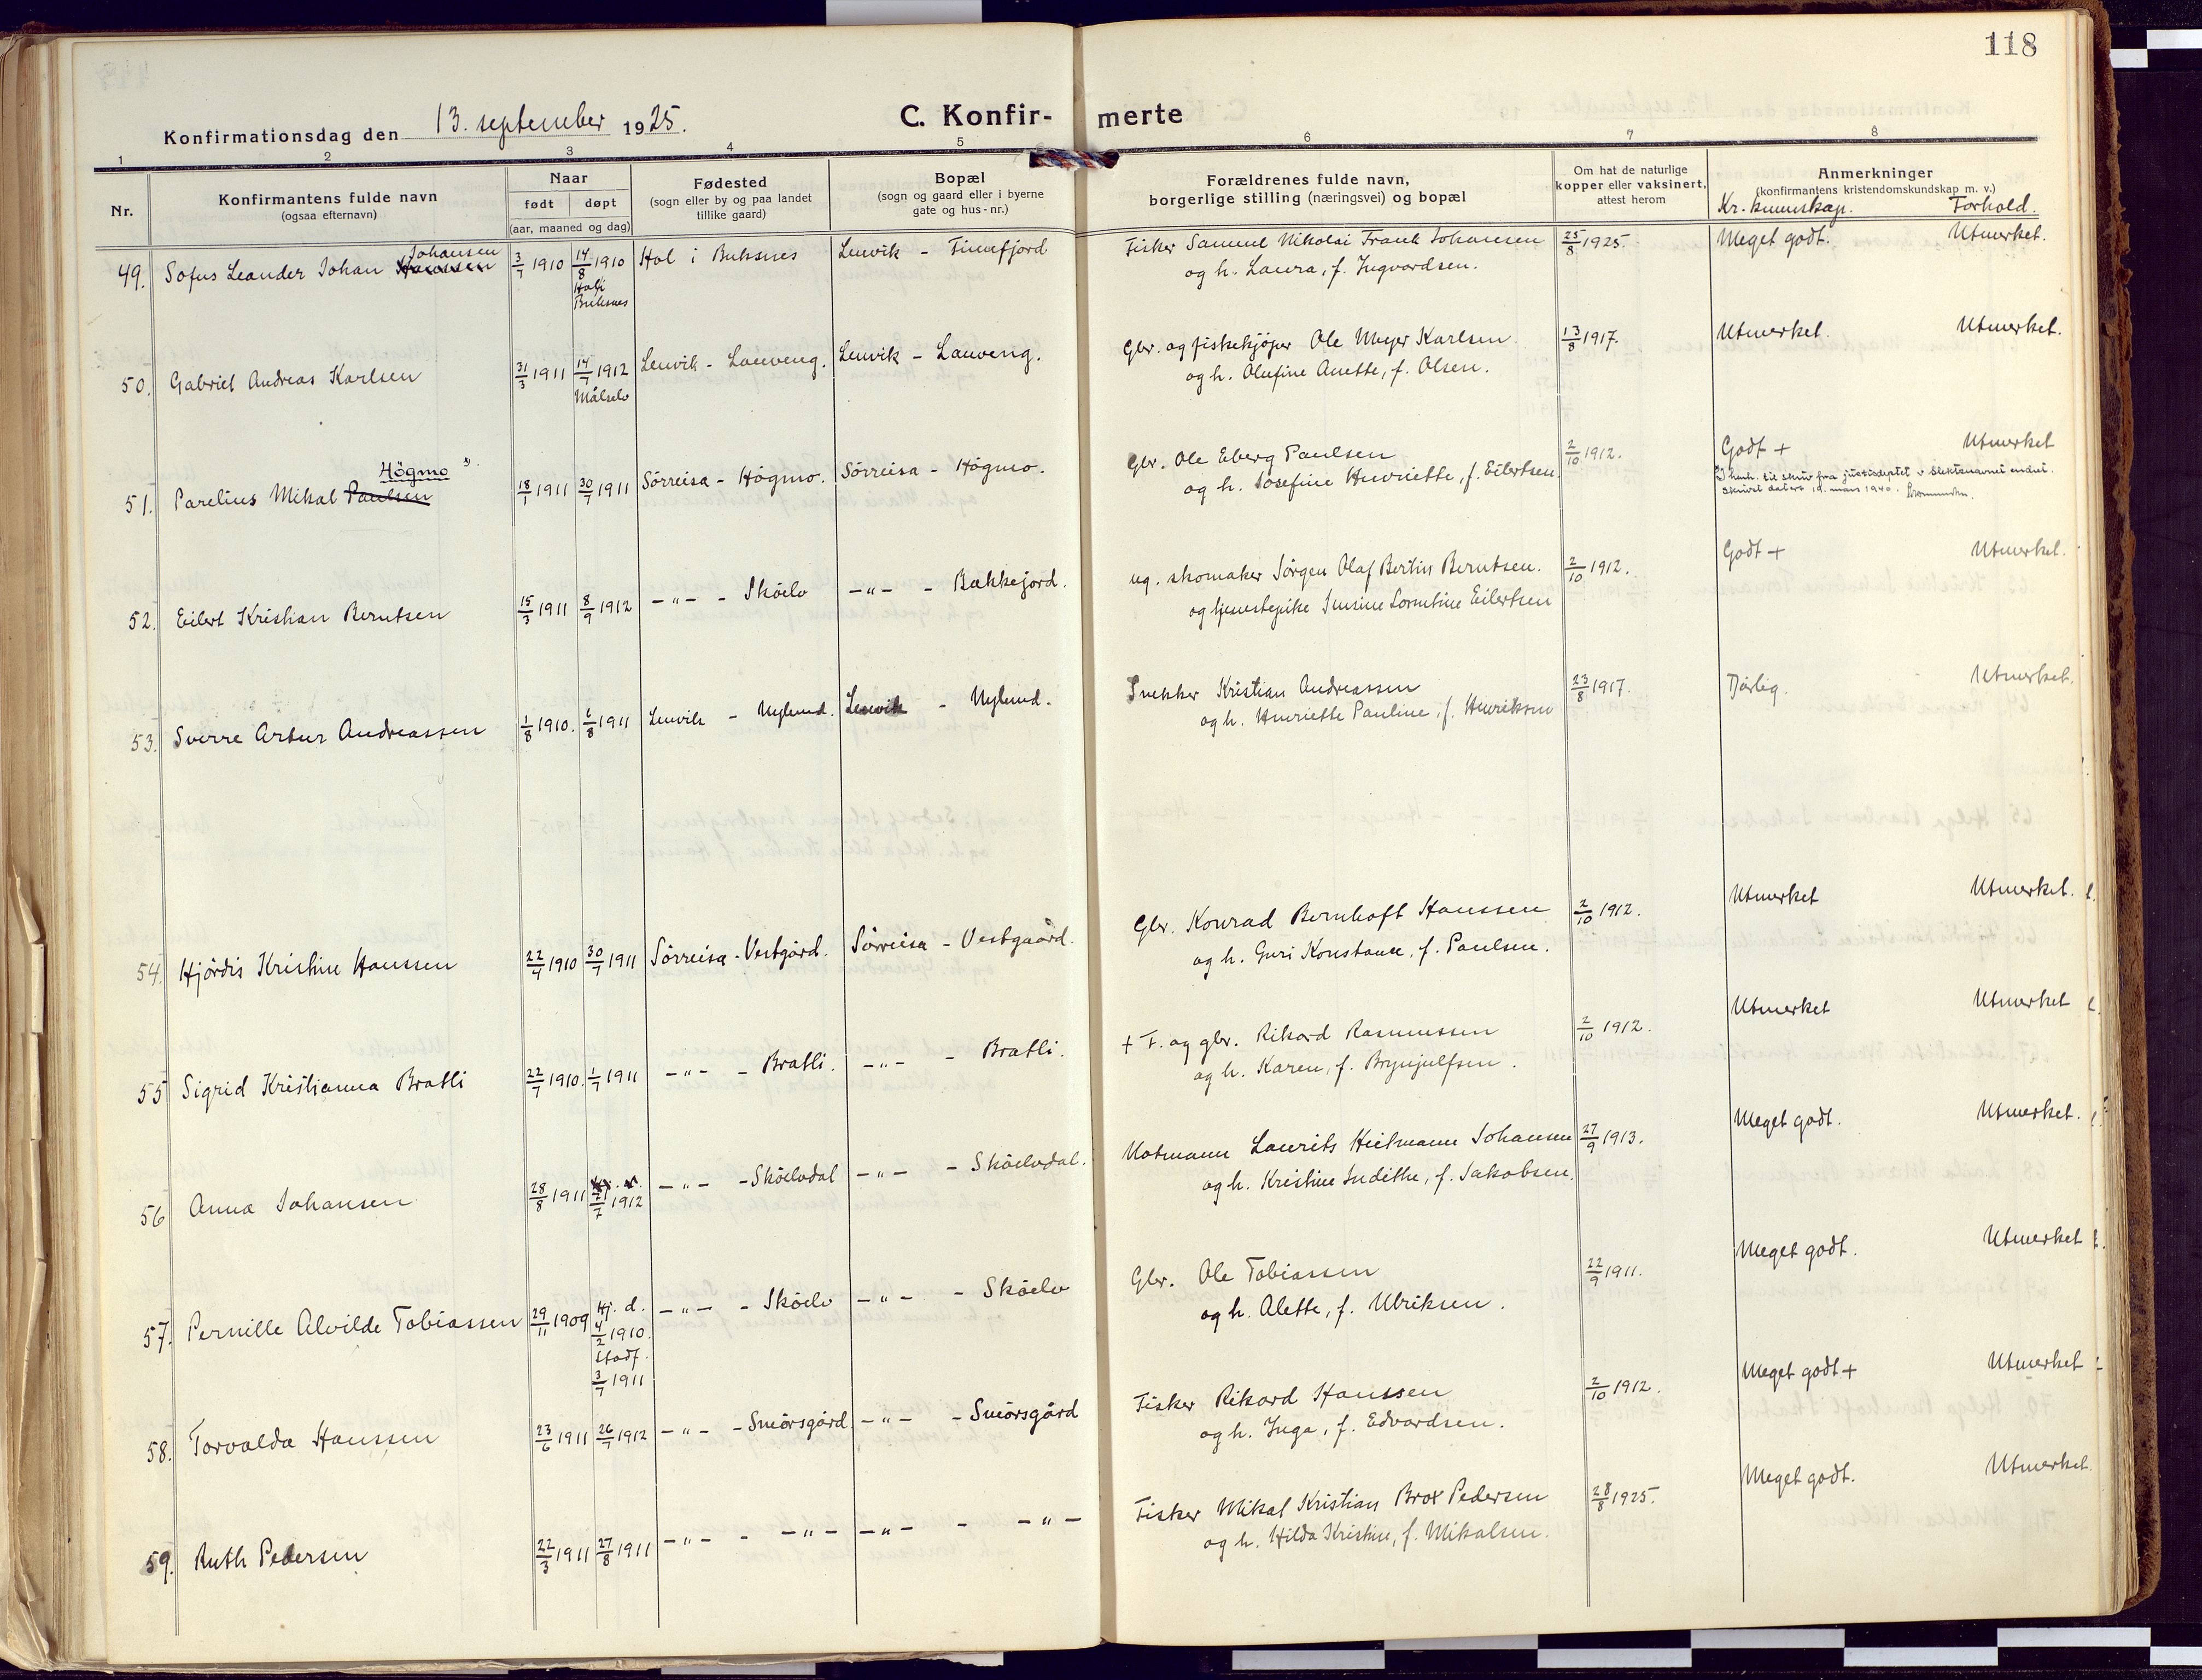 118
Konfirmationsdag den 13. september 1925.
C. Konfir- merte
1 2 3 4 5 6 7 8
Nr.
Konfirmantens fulde navn
(ogsaa efternavn)
Naar
født døpt
(aar, maaned og dag)
Fødested
(sogn eller by og paa landet
tillike gaard)
Bopæl
(sogn og gaard eller i byerne
gate og hus-nr.)
Forældrenes fulde navn,
borgerlige stilling (næringsvei) og bopæl
Om hat de naturlige
kopper eller vaksinert,
attest herom
Anmerkninger
(konfirmantens kristendomskundskap m. v.)
Kr. kunnskap. Forhold.
Johansen
49. Sofus Leander Johan Hanssen 3/7 1910 14/8 1910 Hol i Buksnes Lenvik - Finnfjord Fisker Samuel Nikolai Frank Johansen 25/8 1925. Meget godt. Utmerket.
Hol i
Buksnes
og h. Laura, f. Ingvardsen.
50. Gabriel Andreas Karlsen 31/3 1911 14/7 1912 Lenvik - Lauveng. Lenvik - Lauveng. Gbr. og fiskekjøper Ole Meyer Karlsen 13/8 1917. Utmerket. Utmerket.
Målselv
og h. Olufine Anette, f. Olsen.
Högmo x).
51. Parelius Mikal Paulsen 18/1 1911 30/7 1911 Sörreisa - Högmo. Sörreisa - Högmo. Gbr. Ole Eberg Paulsen 2/10 1912. Godt + Utmerket
og h. Josefine Henriette, f. Eilertsen.
x) I henh. til skriv fra justisdeptet er slektsnavnet endret.
Skrivet datert 19. mars 1940.
52. Eilert Kristian Berntsen 15/3 1911 8/9 1912 -"- - Sköelv -"- - Bakkejord. ug. skomaker Jörgen Olaf Bertin Berntsen. 2/10 1912. Godt + Utmerket.
og tjenestepike Jensine Lorentine Eilertsen
53. Sverre Artur Andreassen 1/8 1910. 6/8 1911 Lenvik - Nylund. Lenvik - Nylund. Snekker Kristian Andreassen 23/8 1917. Dårlig. Utmerket.
og h. Henriette Pauline, f. Henriksen
54. Hjördis Kristine Hanssen 22/4 1910 30/7 1911 Sörreisa - Vestgård. Sörreisa - Vestgaard. Gbr. Konrad Bernhoft Hanssen 2/10 1912. Utmerket Utmerket.
og h. Guri Konstance, f. Paulsen.
55 Sigrid Kristianna Bratli 22/7 1910. 1/7 1911 -"- - Bratli. -"- - Bratli. + F. og gbr. Rikard Rasmussen 2/10 1912. Utmerket Utmerket
og h. Karen, f. Brynjulfsen.
56 Anna Johansen 28/8 1911 21/7 1912 -"- - Sköelvdal -"- - Sköelvdal. Notmann Laurits Heitmann Johansen 27/9 1913. Meget godt. Utmerket.
og h. Kristine Judithe, f. Jakobsen.
57. Pernille Alvilde Tobiassen 29/11 1909 Hj. d. 4/2 1910. -"- - Sköelv -"- - Sköelv Gbr. Ole Tobiassen 22/9 1911. Meget godt. Utmerket
Stadf.
3/7 1911
og h. Alette, f. Ulriksen.
58. Torvalda Hanssen 23/6 1911 26/7 1912 -"- - Smörsgård -"- - Smörsgård Fisker Rikard Hanssen 2/10 1912. Meget godt + Utmerket
og h. Inga, f. Edvardsen.
59. Ruth Pedersen 22/3 1911 27/8 1911 -"- - -"- -"- - -"- Fisker Mikal Kristian Brox Pedersen 28/8 1925. Meget godt. Utmerket.
og h. Hilda Kristine, f. Mikalsen.